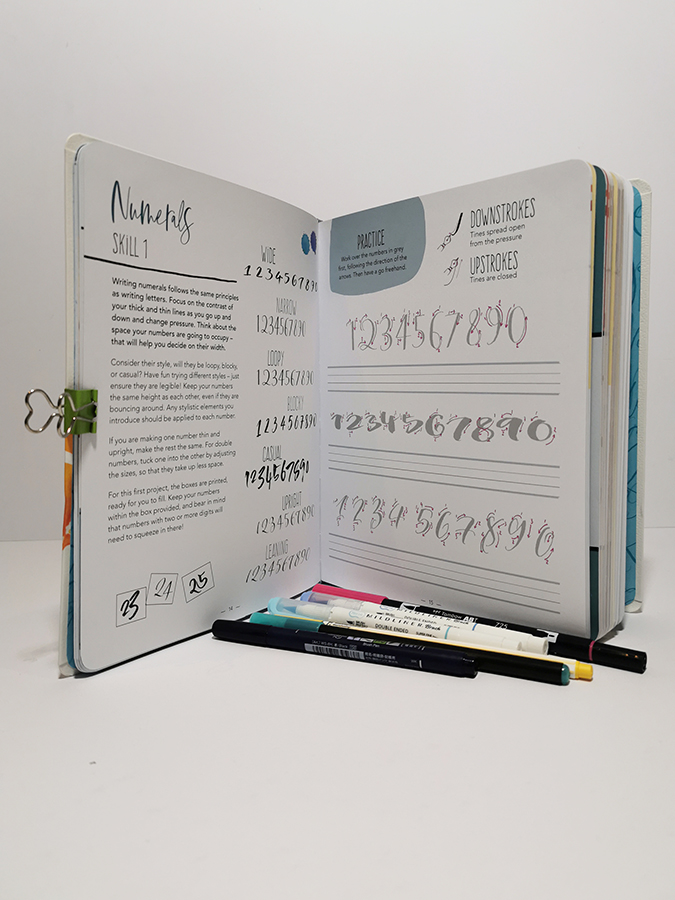 Numerals
SKILL 1
Writing numerals follows the same principles
as writing letters. Focus on the contrast of
your thick and thin lines as you go up and
down and change pressure. Think about the
space your numbers are going to occupy –
that will help you decide on their width.
Consider their style, will they be loopy, blocky,
or casual? Have fun trying different styles – just
ensure they are legible! Keep your numbers
the same height as each other, even if they are
bouncing around. Any stylistic elements you
introduce should be applied to each number.
If you are making one number thin and
upright, make the rest the same. For double
numbers, tuck one into the other by adjusting
the sizes, so that they take up less space.
For this first project, the boxes are printed,
ready for you to fill. Keep your numbers
within the box provided, and bear in mind
that numbers with two or more digits will
need to squeeze in there!
23 24 25
WIDE
1234567890
NARROW
1234567890
LOOPY
1234567890
BLOCKY
1234567890
CASUAL
1234567890
UPRIGHT
1234567890
LEANING
1234567890
– 14 –
PRACTICE
Work over the numbers in grey
first, following the direction of the
arrows. Then have a go freehand.
DOWNSTROKES
Tines spread open
from the pressure
UPSTROKES
Tines are closed
1234567890
1234567890
1234567890
– 15 –
Tombow
ART
725
WILDLINER Brush
DOUBLE ENDED